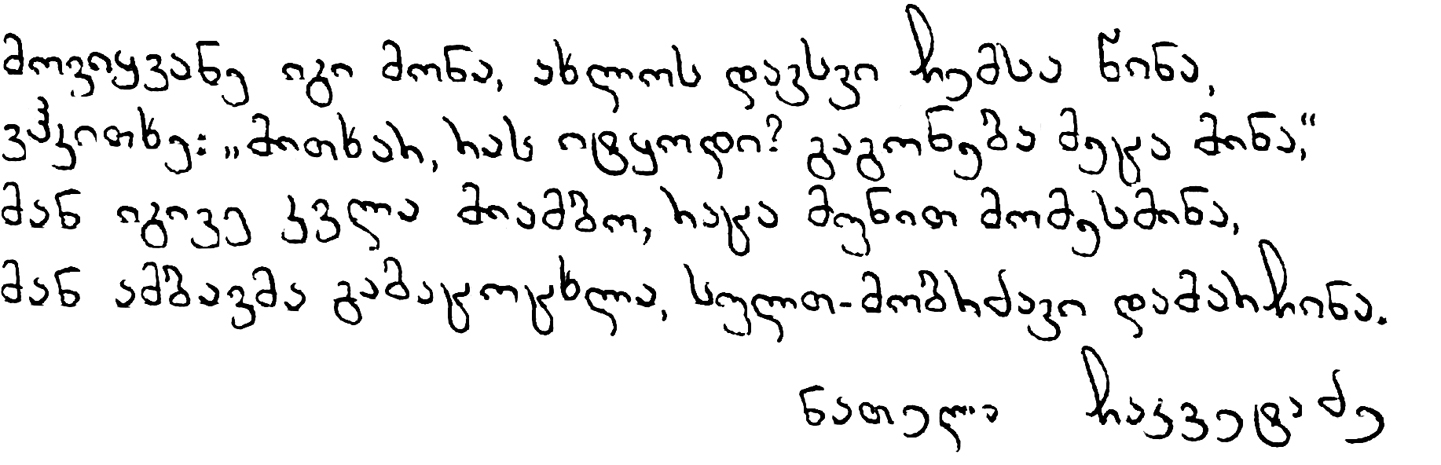 მოვიყვანე იგი მონა, ახლოს დავსვი ჩემსა წინა,
ვჰკითხე: „მითხარ, რას იტყოდი? გაგონება მეცა მინა,“
მან იგივე კვლა მიამბო, რაცა შენით მომესმინა,
მან ამბავმა გამაცოცხლა, სულთ-მობრძავი დამარჩინა.
ნათელა ჩაკვეტაძე